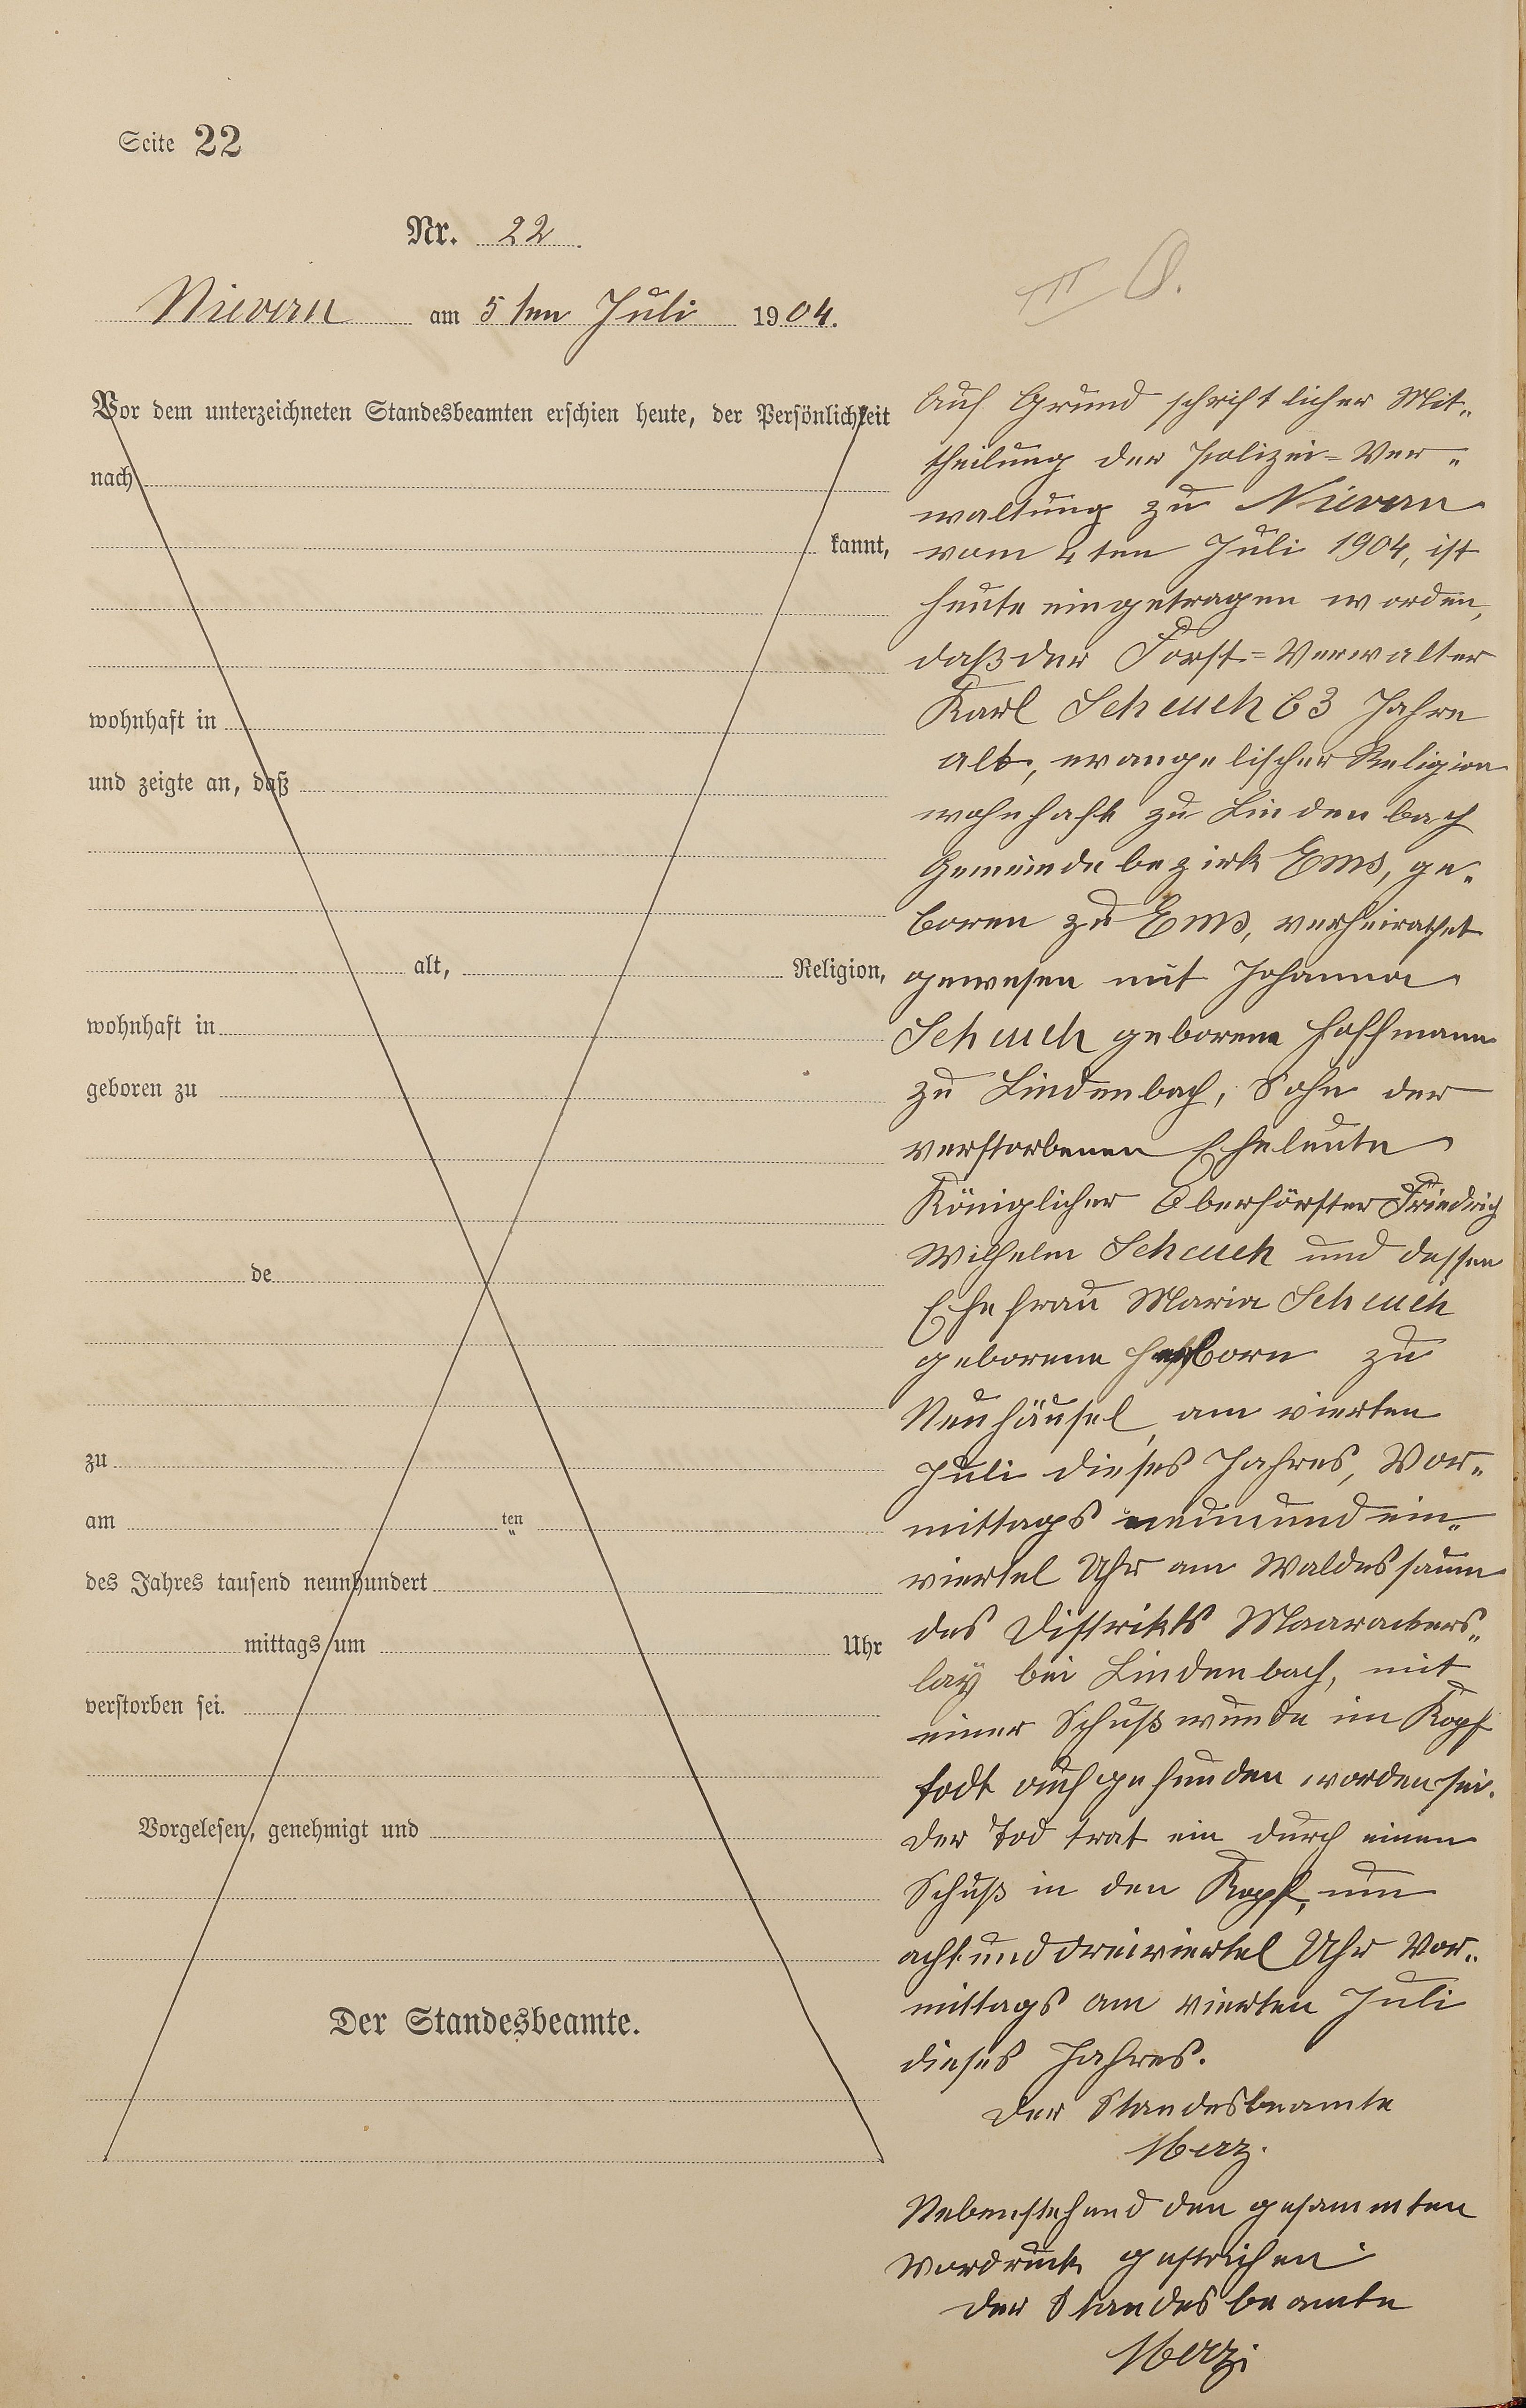 Seite 22
Nr. 22
Nievern am 5ten Juli 1904.
Vor dem unterzeichneten Standesbeamten erschien heute, der Persönlichkeit
nach
kannt,
wohnhaft in
und zeigte an, daß
alt, Religion,
wohnhaft in
geboren zu
de
zu
am ten
des Jahres tausend neunhundert
mittags um Uhr
verstorben sei.
Vorgelesen, genehmigt und
Der Standesbeamte.
II
Auf Grund schriftlicher Mit„
theilung der Polizei=Ver„
waltung zu Nievern
vom 4ten Juli 1904, ist
heute eingetragen worden,
daß der Forst=Verwalter
Karl Scheuch 63 Jahre
alt, evangelischer Religion
wohnhaft zu Lindenbach
Gemeindebezirk Ems, ge„
boren zu Ems, verheirathet
gewesen mit Johanna
Scheuch geborene Hoffmann
zu Lindenbach, Sohn der
verstorbenen Eheleute
Königlicher Oberförster Friedrich
Wilhelm Scheuch und dessen
Ehefrau Maria Scheuch
geborene zu
Neuhäusel, am vierten
Juli dieses Jahres, Vor„
mittags neunundein„
viertel Uhr am Waldessaum
des Distrikts Maarackers„
lay bei Lindenbach, mit
einer Schußwunde im Kopf
todt aufgefunden worden sei.
Der Tod trat ein durch einen
Schuß in den Kopf, um
achtunddreiviertel Uhr Vor„
mittags am vierten Juli
dieses Jahres.
Der Standesbeamte
Merz.
Nebenstehend den gesammten
Vordruck gestrichen
Der Standesbeamte
Merz.